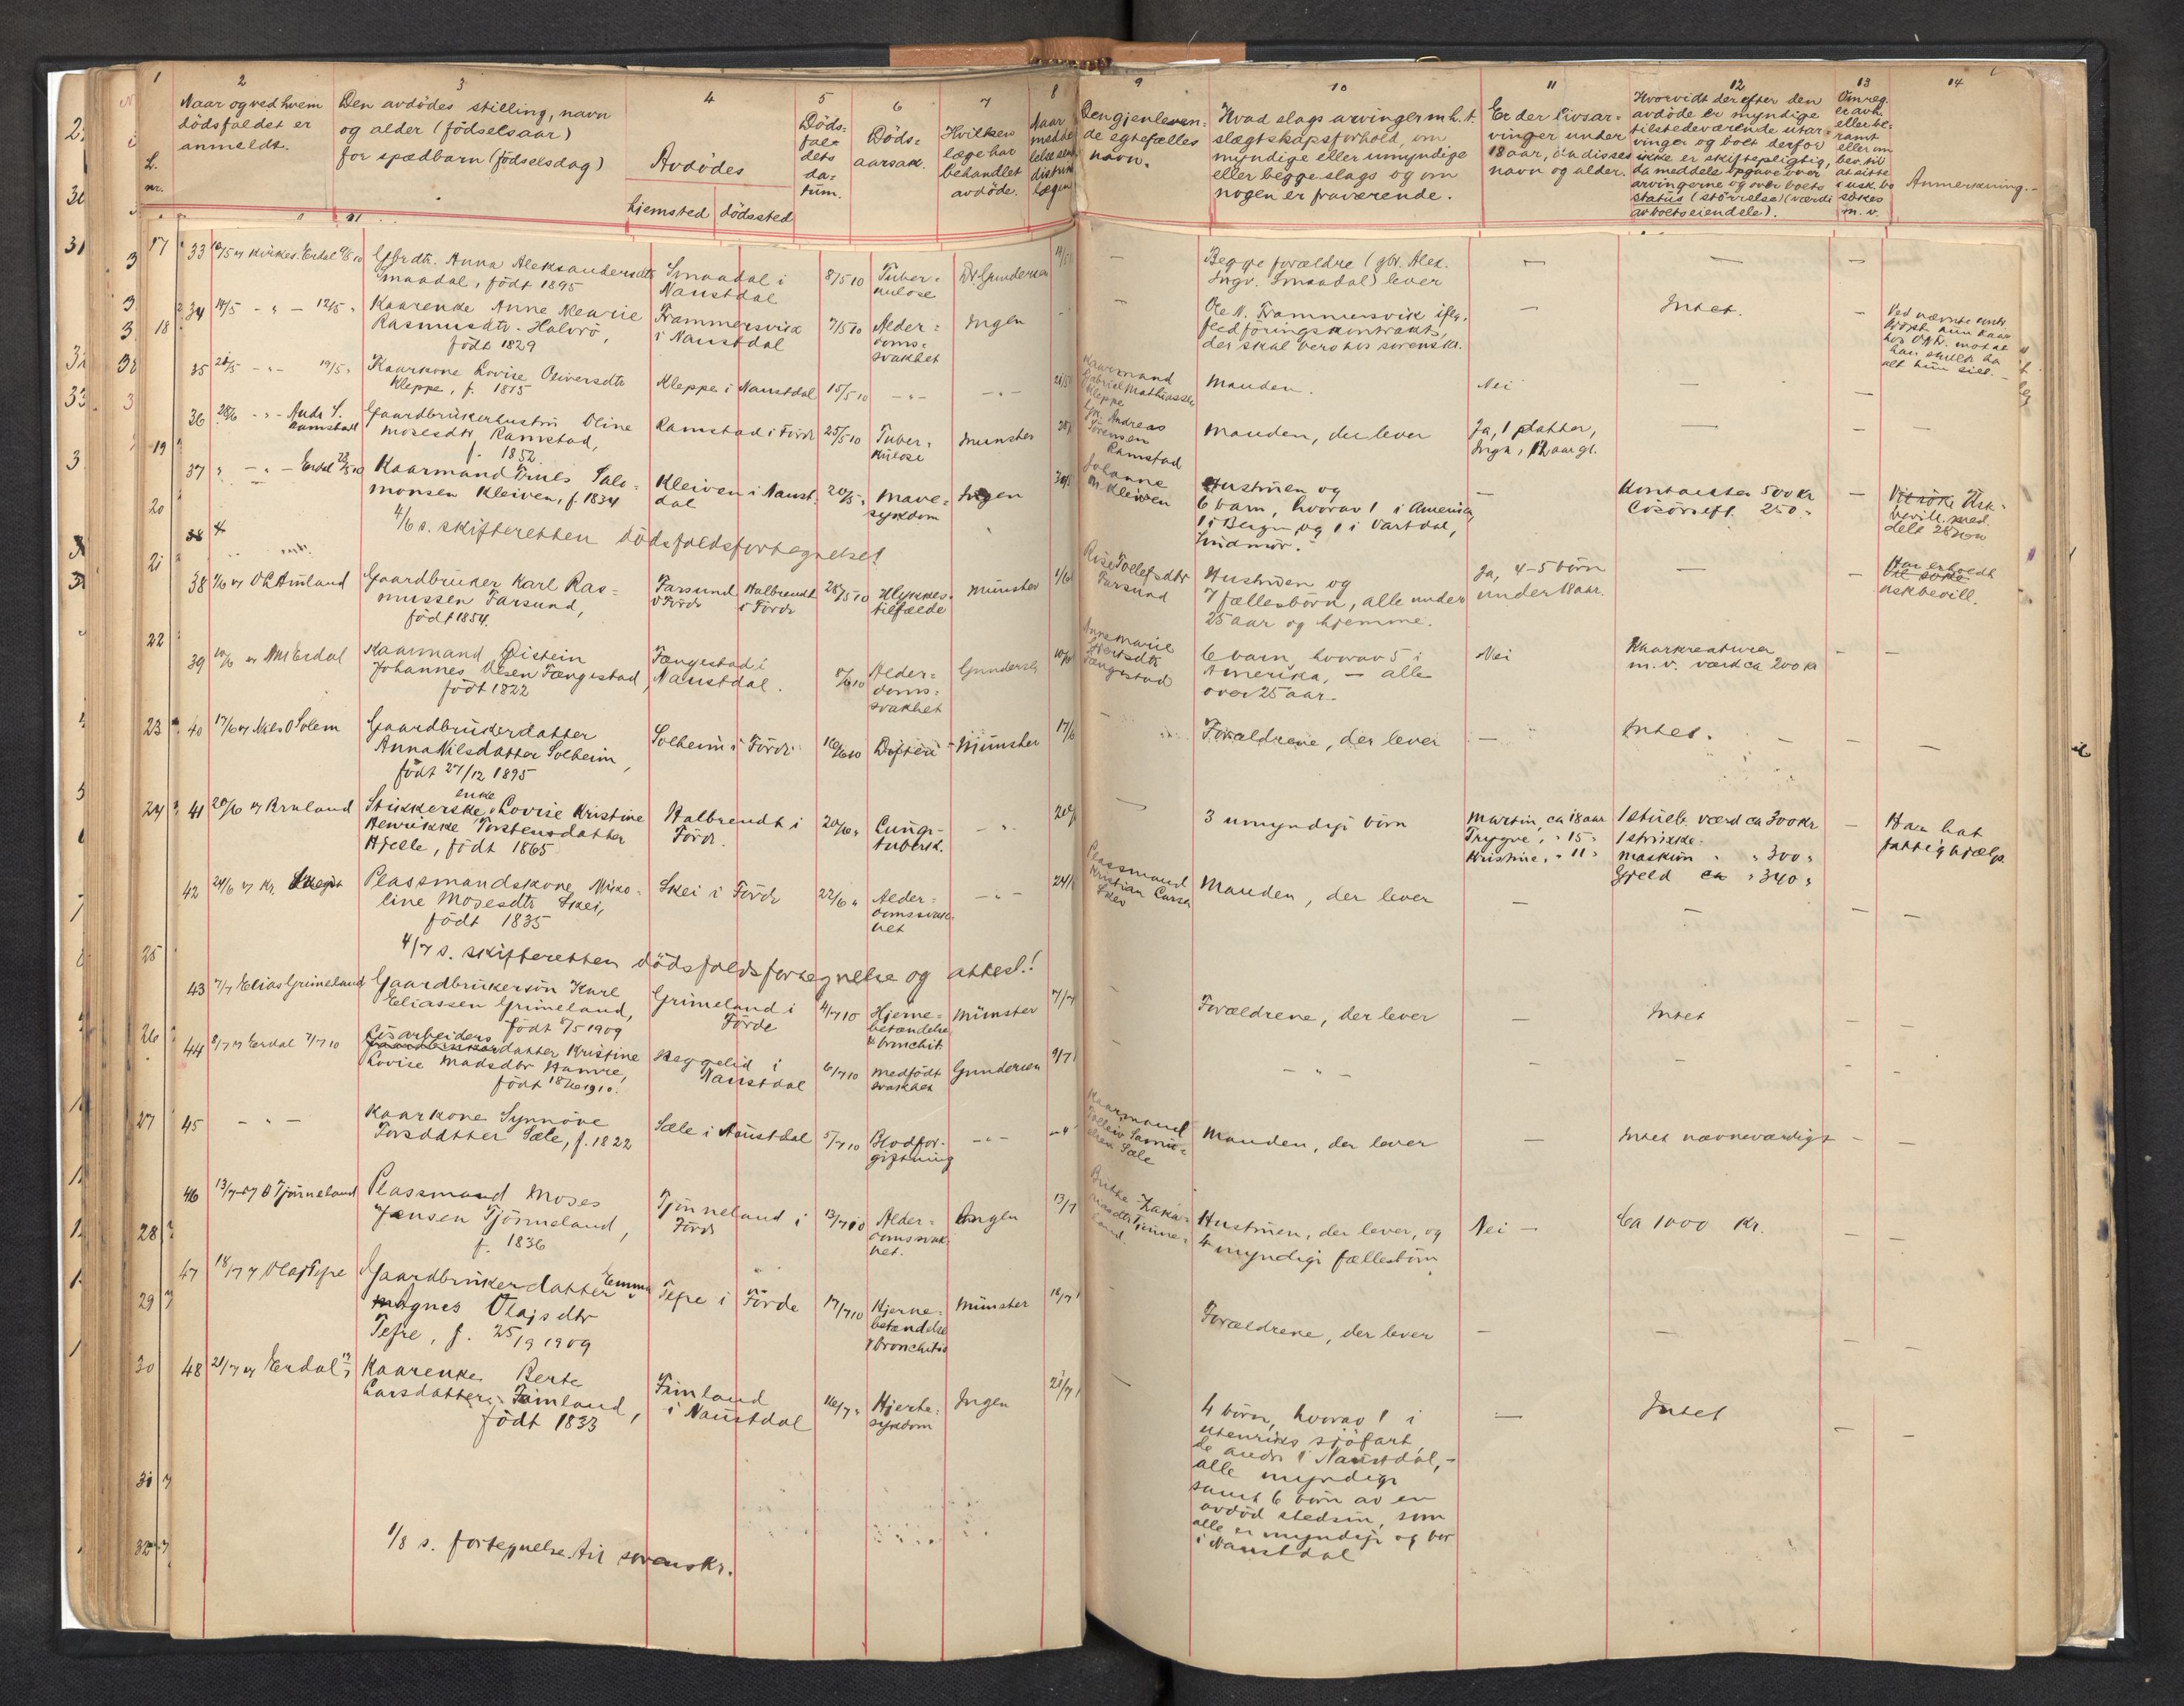 1 2 3 4 5 6 7 8 9 10 11 12 13 14
L. nr.
Naar og ved hvem
dödsfaldet er
anmeldt.
Den avdödes stilling, navn
og alder (födselsaar)
for spædbarn (födselsdag)
Avdödes
hjemsted dödssted
Döds=
fal=
dets
da=
tum.
Döds=
aarsak.
Hvilken
læge har
behandlet
avdöde.
Naar
Den gjenleven=
de egtefælles
navn.
Hvad slags arvinger m.h.t.
slægtskapsforhold, om
myndige eller umyndige
eller begge slags og om
nogen er fraværende.
Er der livsar=
vinger under
18 aar, da disses
navn og alder.
Hvorvidt der efter den
avdöde er myndige
tilstedeværende utar=
vinger og boet derfor
ikke er skiftepligtig,
da meddeles opgave over
arvingerne og over boets
status (störrelse) (værdi
av boets eiendele).
Om reg.
er avh.
eller be=
ramt
eller om
bev. til
at sitte
i usk. bo
sökes
m. v.
Anmerkning.
33 Gbrdtr. Anna Aleksandersdtr
Smaadal, födt 1895
Smaadal i
Naustdal
8/5 10
Tuber=
kulose
Dr Gundersen
—
Begge forældre (gbr. Alex.
Ingv. Smaadal) lever
— — —
34 14/5 - " - 12/5 "
Kaarenke Anne Marie
Rasmusdtr. Halvrö,
födt 1829
Frammersvik
i Naustdal
7/5 10
Alder=
doms=
svakhet
Ingen
—
Ole N. Frammersvik ifly.
födföringskontrakt,
der skal bero hos sorenskr.
—
Intet.
—
35 19/5 "
Kaarkone Lovise Oliversdtr
Kleppe, f. 1815
Kleppe i Naustdal
15/5 10
- " -
- " -
Kaarmand
Gabriel Mathiassen
Kleppe
Manden.
Nei
— —
36 28/5 - " - Andr S.
Ramstad
Gaardbrukerhustru Oline
Mosesdtr Ramstad,
f. 1852
Ramstad i Förde
25/5 10
Tuber=
kulose
Munster
Gbr. Andreas
Sörensen
Ramstad
Manden, der lever
Ja, 1 datter,
Inga, 12 aar gl.
— — —
37 " - " - Erdal 28/5 10
Kaarmand Truls Salo=
monsen Kleiven, f. 1834
Kleiven i Naust=
dal
20/5 "
Mave=
sykdom
Ingen
Johanne
M. Kleiven
Hustruen og
6 barn, hvorav 1 i Amerika,
1 i Bergen og 1 i Vartdal,
Söndmör.
—
Kontanter 500 kr
Lösöreeft. 250 "
—
4/6 s. skifteretten dödsfaldsfortegnelse!
38 1/6 v O L Huland
Gaardbruker Karl Ras=
mussen Farsund,
födt 1854.
Farsund
i Förde
Halbrendt
i Förde
28/5 10
Ulykkes=
tilfælde
Münster
1/6
Farsund
Hustruen og
7 fællesbörn, alle under
25 aar og hjemme.
Ja, 4-5 börn
under 18 aar.
— —
Har erholdt
uskbevill.
39 Erdal
Kaarmand Øistein
Johannes Olsen Fængestad,
födt 1822
Fængestad i
Naustdal.
Alder=
doms=
svakhet
Gundersen
Anne Marie
Fængestad
6 barn, hvorav 5 i
Amerika, — alle
over 25 aar.
Nei
Kaarkreaturer
m. v. værd ca 200 kr
— —
40 17/6 v Nils O Solem
Gaardbrukerdatter
Anna Nilsdatter Solheim,
födt 27/12 1895
Solheim i Förde
16/6 10
Difteri
Münster
17/6
—
Forældrene, der lever
—
Intet.
— —
41 20/6 v Bruland
Stikkerske, enke Lovise Kristine
Henrikke Torstensdatter
Hjelle, födt 1865
Halbrendt i
Förde.
20/6 "
Lunge=
tuberk.
- " -
—
3 umyndige börn
Martin, ca 18 aar
Trygve, " 15 "
Kristine, " 11 "
1 stueb. værd ca 300 kr
1 strikke=
maskin " " 300 "
Gjeld ca " 340 "
—
Har hat
fattighjælp
42 24/6 v Kr.
Plassmandskone Niko=
line Mosesdtr Skei,
födt 1835
Skei i Förde
22/6 "
Alder=
domssvak=
het
- " -
Plassmand
Kristian Larsen
Skei
Manden, der lever
— — — —
4/7 s. skifteretten dödsfaldsfortegnelse og attest!
43 7/7 Elias Grimeland
Gaardbrukersön Karl
Eliassen Grimeland,
födt 8/5 1909
Grimeland i
Förde
4/7 10
Hjerne=
betændelse
& bronchit.
Münster
7/7
—
Forældrene, der lever
—
Intet
— —
44 8/7 v Erdal 7/7 10
Lösarbeiders
datter Kristine
Lovise Madsdtr Hamre,
födt 18/6 1910.
Skeggelid i
Naustdal
6/7 10
Medfödt
svakhet
Gundersen
9/7
—
- " -
— — — —
45 - " -
Kaarkone Synnöve
Torsdatter Sæle, f. 1822
Sæle i Naustdal
5/7 10
Blodfor=
giftning
- " -
Kaarmand
Sæle
Manden, der lever
—
Intet nævneværdigt
— —
46 13/7 v O Tjönneland
Plassmand Moses
Jensen Tjönneland,
f. 1836
Tjönneland i
Förde
13/7 10
Alder=
domssvak=
het.
Ingen
13/7
Hustruen, der lever, og
4 myndige fællesbörn
Nei —
Ca 1000 kr.
— —
47 18/7 v Olaf Tefre
Gaardbrukerdatter Emma
Agnes Olajsdtr
Tefre, f. 25/9 1909
Tefre i Förde
17/7 10
Hjerne=
betændelse
& bronchitis
Münster
18/7
—
Forældrene, der lever
— — — —
48 21/7 v Erdal
Kaarenke Berte
Larsdatter Fimland,
födt 1833
Fimland
i Naustdal
16/7 "
Hjerte=
sykdom
Ingen
21/7
—
4 börn, hvorav 1 i
utenriks sjöfart,
de andre i Naustdal, —
alle myndige
samt 6 börn av en
avdöd stedsön, som
alle er myndige og bor
i Naustdal
—
Intet
— —
1/8 s. fortegnelse til sorenskr.